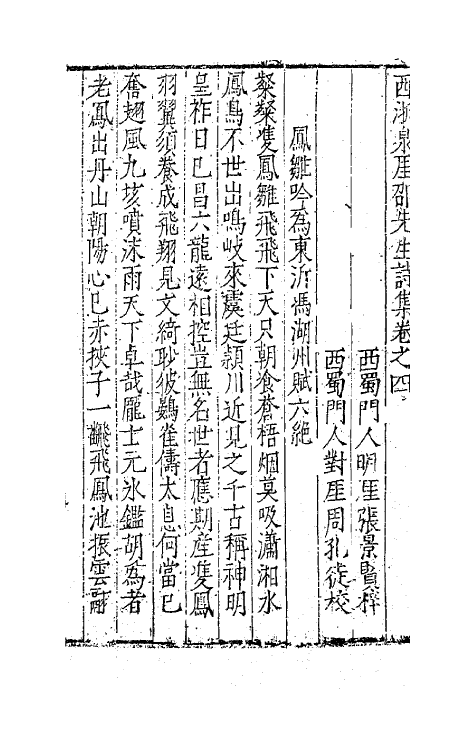 西浙泉厓邵先生詩集卷之四
西蜀門人明厓張景賢梓
西蜀門人對厓周孔徒校
鳳雛吟為東沂馮湖州賦六絶
粲粲雙鳳雛飛飛下天只朝飡蒼梧烟莫吸瀟湘水
鳳鳥不世出鳴岐來虞廷潁川近見之千古稱神明
皇祚日已昌六龍遠相控豈無名世者應期產雙鳳
羽翼須養成飛翔見文綺耿彼鷃雀儔太息何當已
奮翅風九垓噴沫雨天下卓哉龐士元氷鑑胡為者
老鳳出丹山朝陽心已赤挾子一飜飛鳳池振雲翮